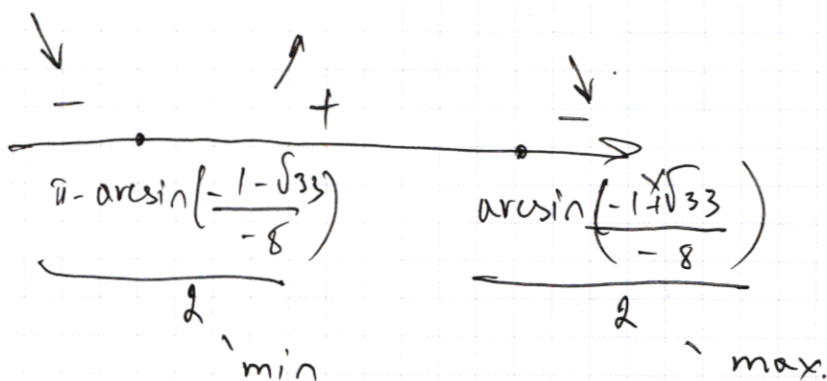 - + -
π - arcsin((-1-√33)/(-8)) / 2
arcsin((-1+√33)/(-8)) / 2
x
min
max.